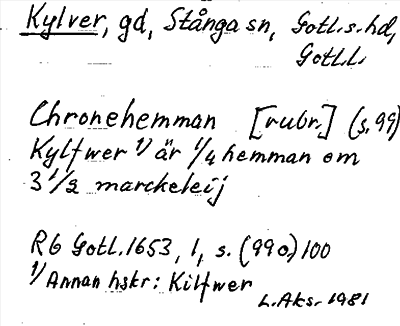 Kylver, gd, Stånga sn, Gotl.s.hd,
Gotl.l.
Chronehemman [rubr.] (s. 99)
Kylfwer 1) är 1/4 hemman om
3 1/2 marckeleij
RG Gotl. 1653, 1, s. (99o) 100
1) Annan hskr: Kilfwer
L. Aks. 1981